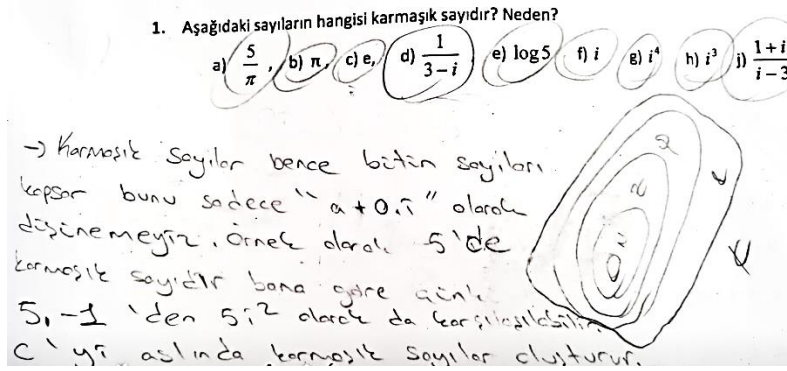 1. Aşağıdaki sayıların hangisi karmaşık sayıdır? Neden?
a) 5/π , b) π, c) e, d) 1/(3-i) e) log5 f) i g) i⁴ h) i³ j) (1+i)/(i-3
→ Karmaşık sayılar bence bütün sayıları
kapsar bunu sadece "a+0.i" olarak
düşünemeyiz. Örnek olarak 5'de
karmaşık sayıdır bana göre çünkü
5.-1 'den 5i² olarak da karşılaşılabilir.
C'yi aslında karmaşık sayılar oluşturur.